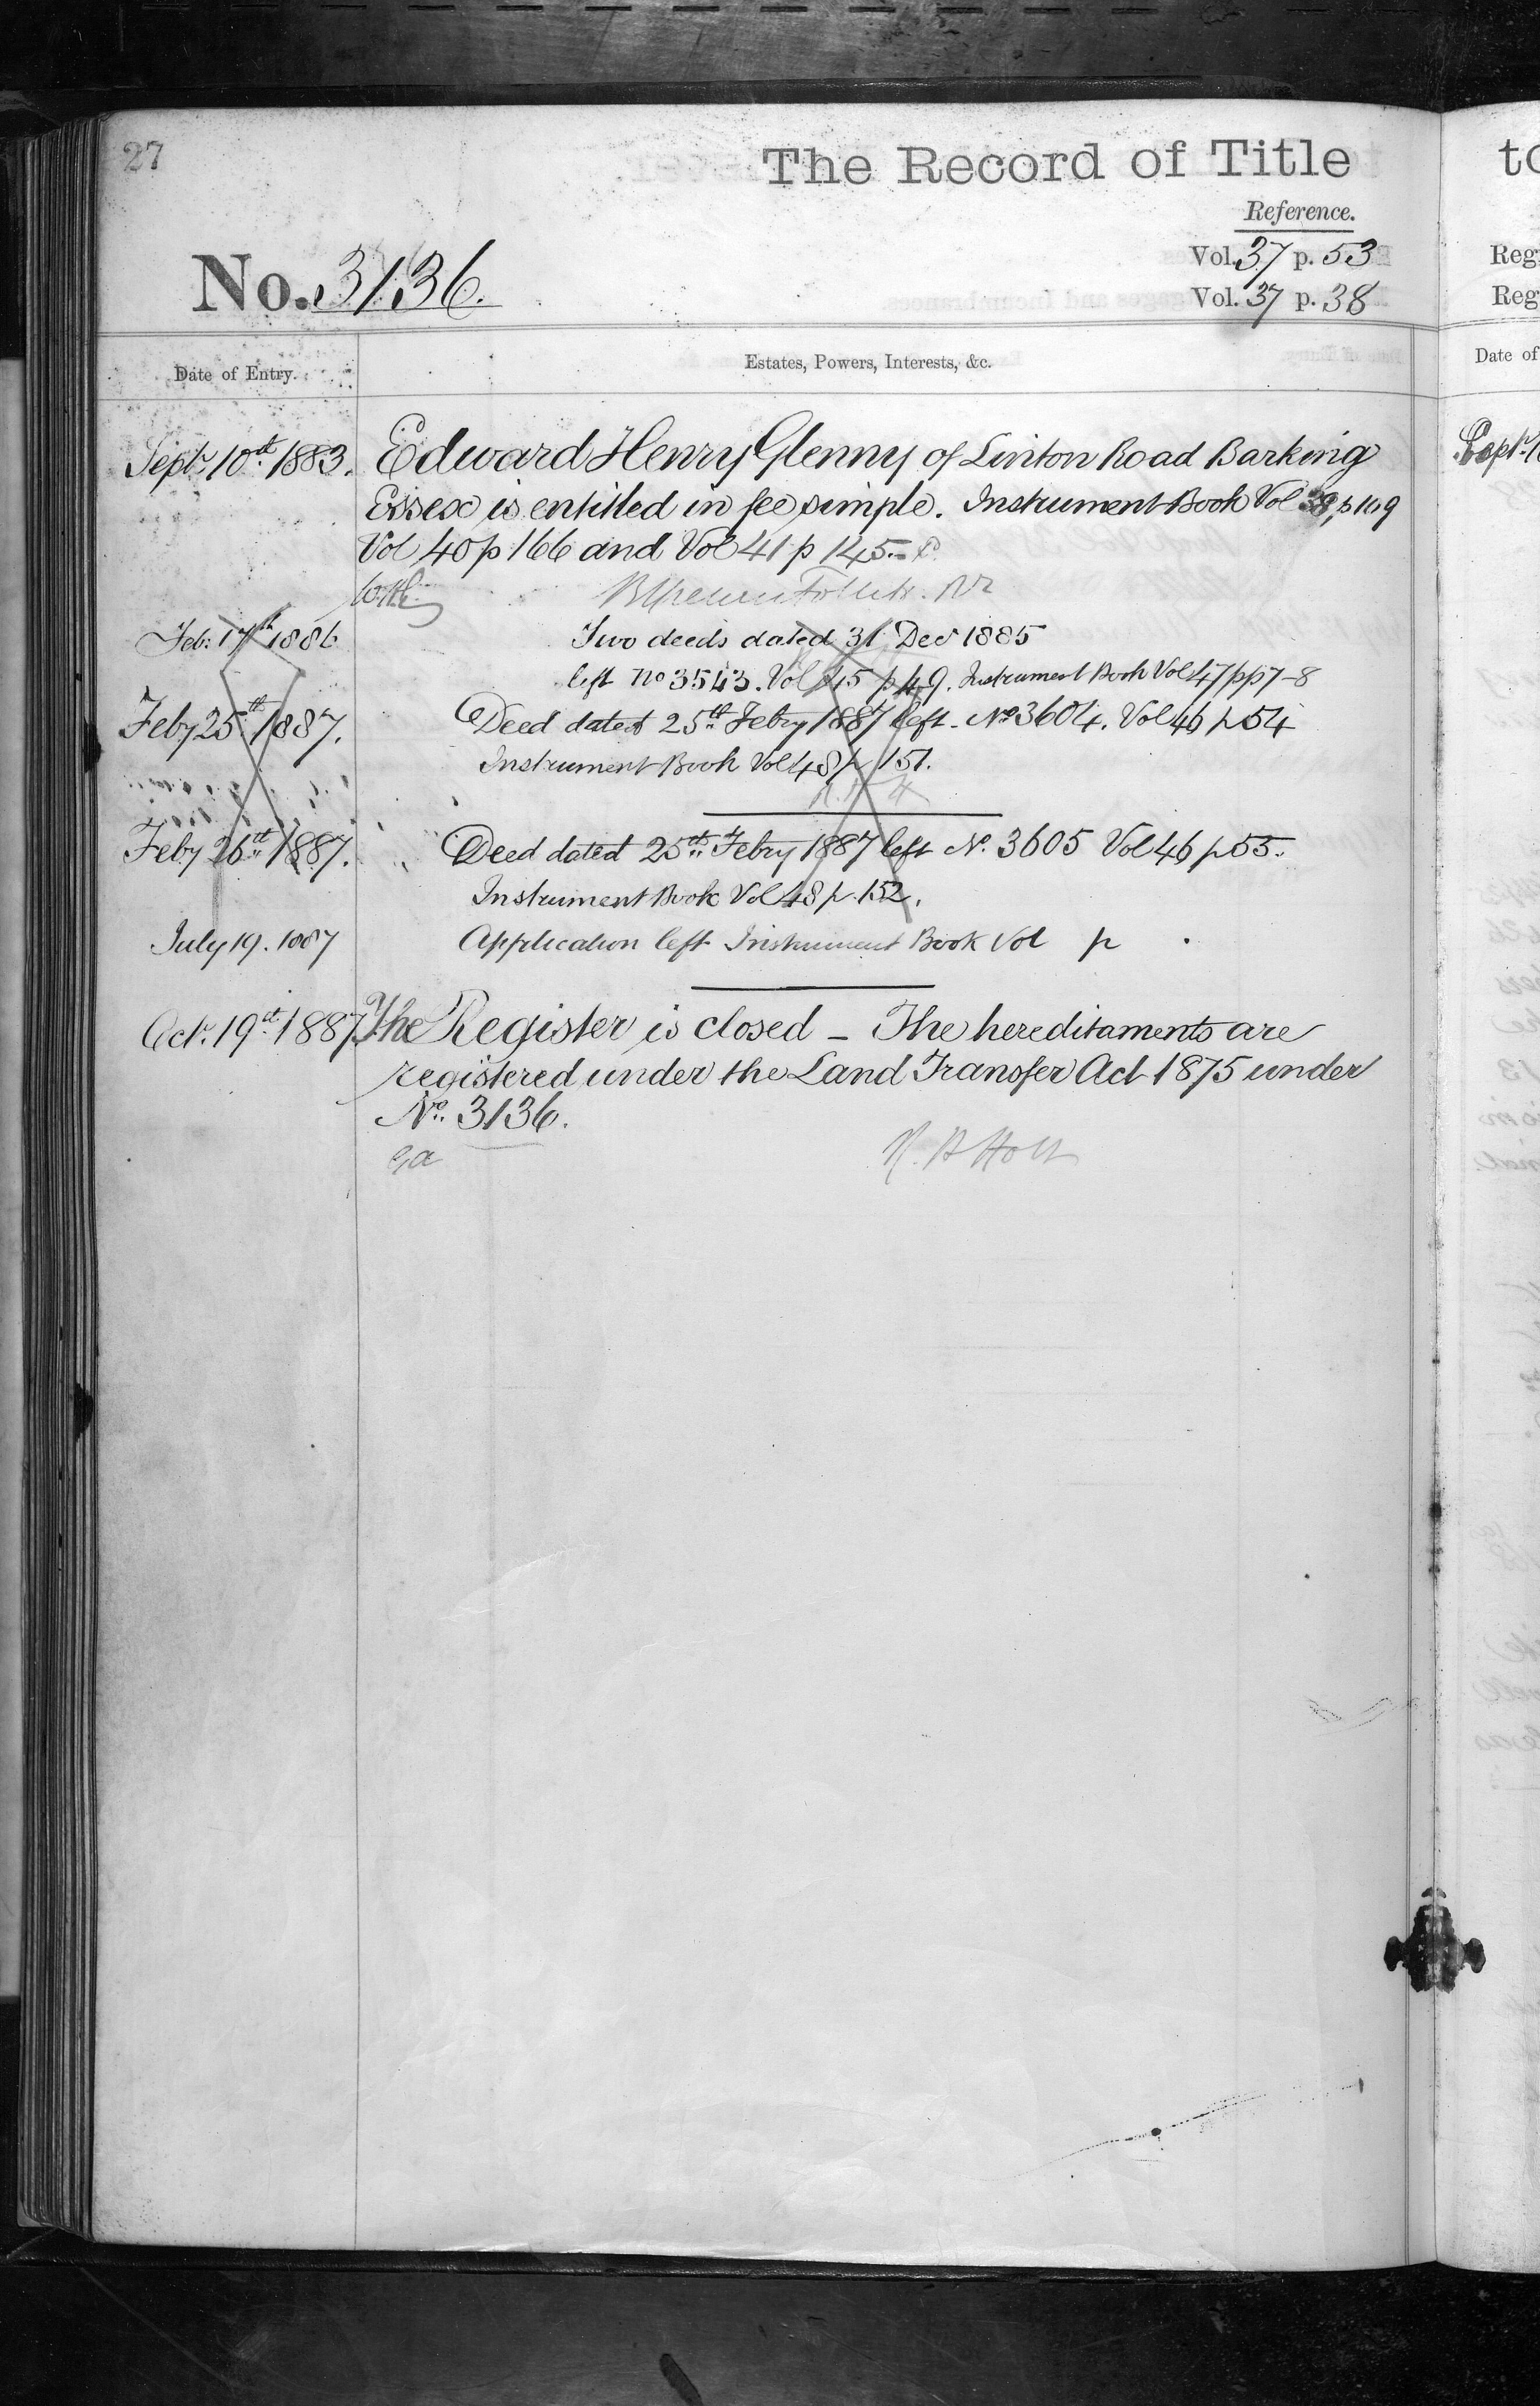 27
The Record of Title
to
Reference.
No. 3136.
Vol. 37 p. 53
Vol. 37 p. 38
Reg
Reg
Date of Entry.
Estates, Powers, Interests, &c.
Date of
Septr. 10th 1883. Edward Henry Glenny of Linton Road Barking
Sept. 1
Essex is entitled in fee simple. Instrument Book Vol 38, p 109
Vol 40 p 166 and Vol 41 p 145.
Feb: 17th 1886 Two deeds dated 31 Decr 1885
left No 3543. Vol 45 p 49. Instrument Book Vol 47 pp 7-8
Feby 25th 1887. Deed dated 25th Febry 1887 left. No 3604. Vol 46 p 54
Instrument Book Vol 48 p 151.
Feby 26th 1887. Deed dated 25th Febry 1887 left No. 3605 Vol 46 p 55.
Instrument Book Vol 48 p. 152.
July 19. 1887 Application left Instrument Book Vol p .
Octr. 19th 1887. The Register is closed - The hereditaments are
registered under the Land Transfer Act 1875 under
No. 3136.
R. H Holt